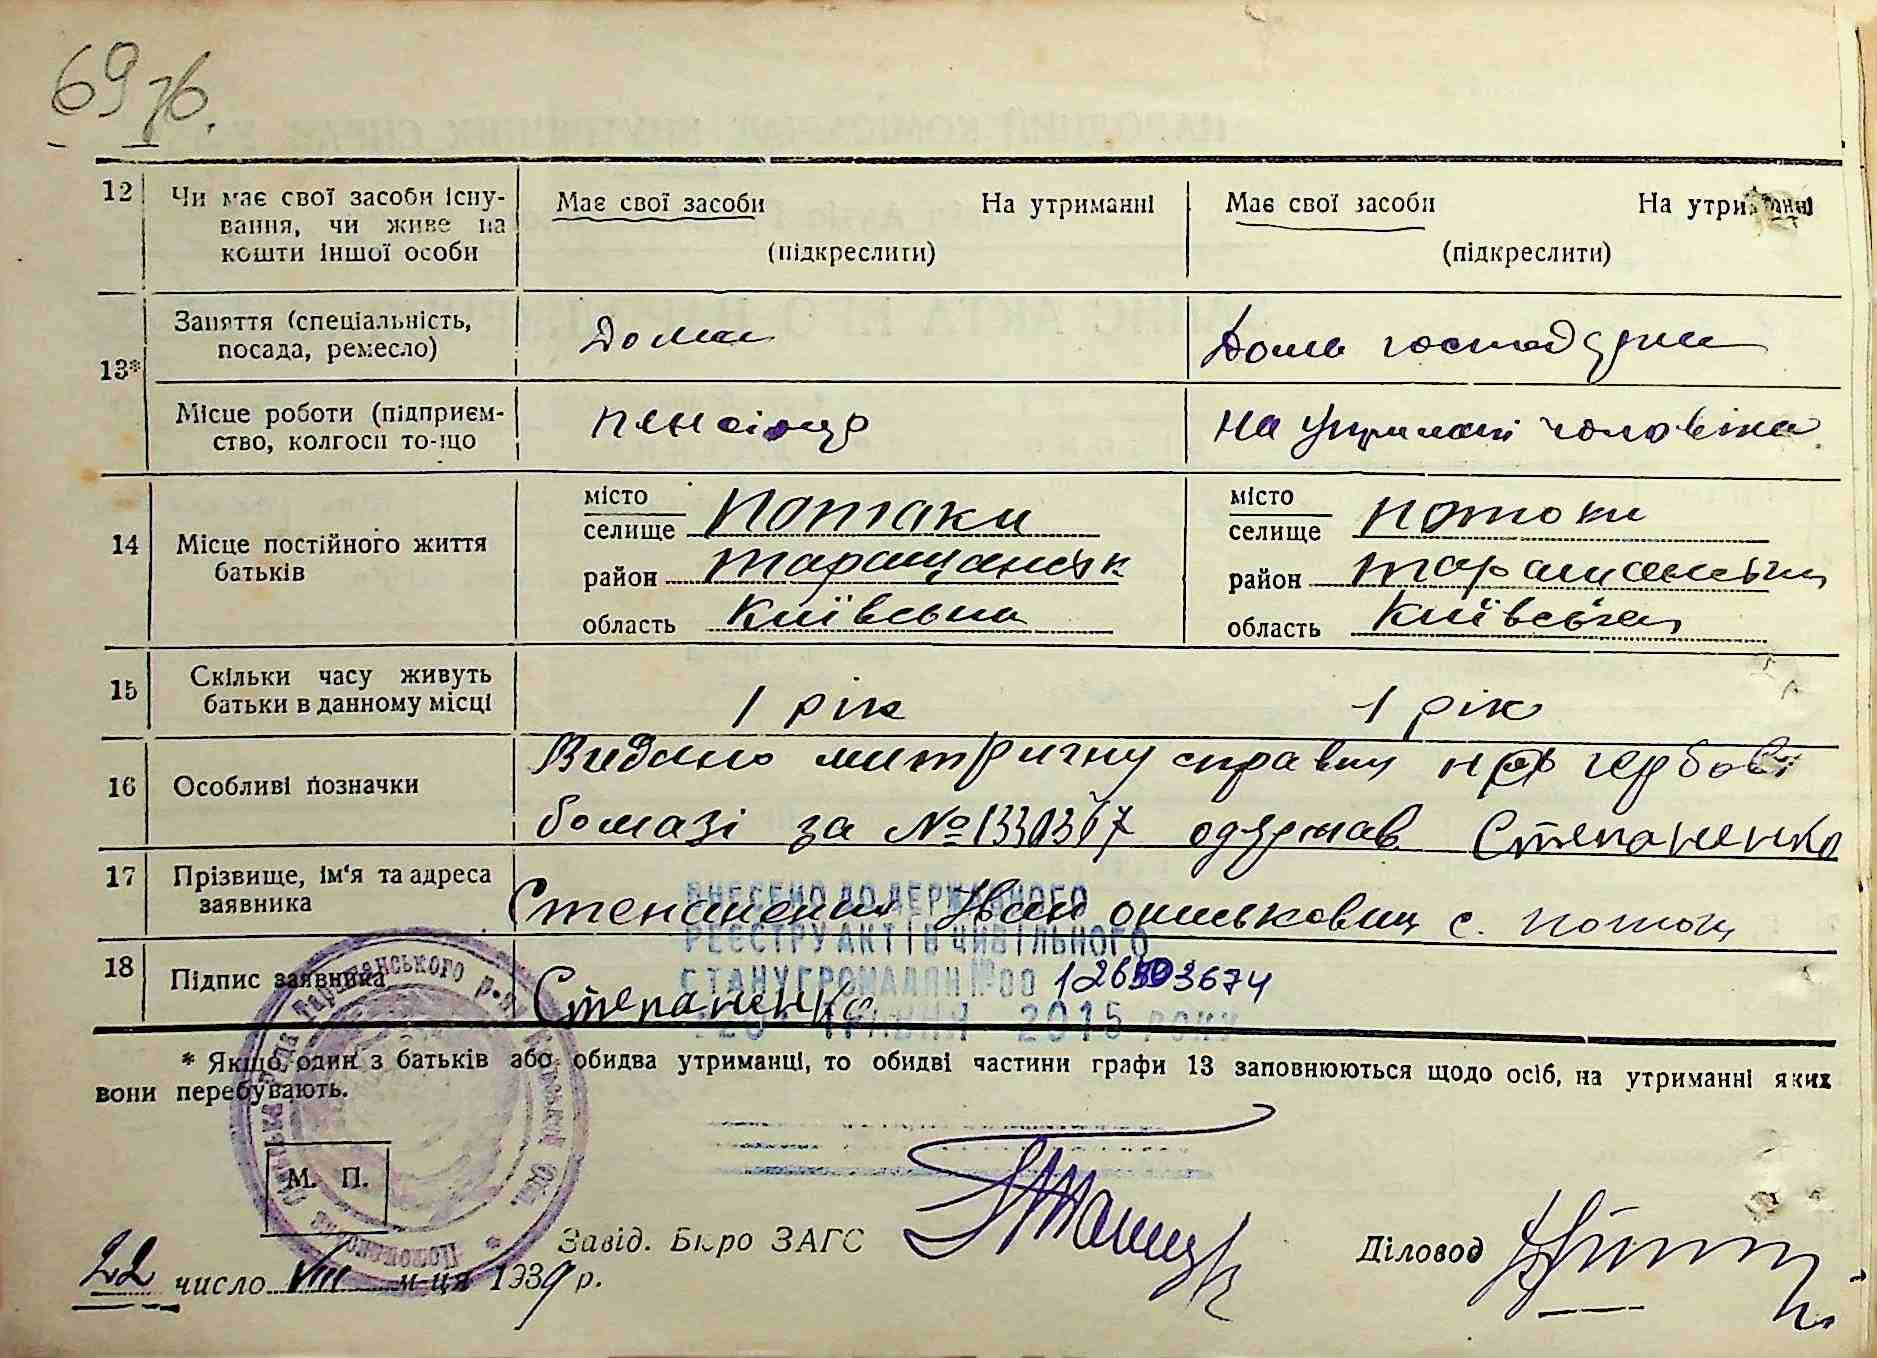 69
12 Чи має свої засоби існу- Має свої засоби На утриманні Має свої засоби На утриманні
вання, чи живе на
кошти іншої особи (підкреслити) (підкреслити)
13* Заняття (спеціальність, Дома Дома
посада, ремесло)
Місце роботи (підприєм- пенсіонер на утримані чоловіка
ство, колгосп то-що
14 Місце постійного життя місто Потоки місто Потоки
батьків селище селище
район Таращанськ район Таращанськ
область Київська область Київська
15 Скільки часу живуть 1 рік 1 рік
батьки в данному місці
16 Особливі позначки Видано митричну справку на гербові
бомазі за № 1330367 одержав Степаненко
17 Прізвище, ім'я та адреса Степаненко Іван с. Потоки
заявника
ВНЕСЕНО ДО ДЕРЖАВНОГО
РЕЄСТРУ АКТІВ ЦИВІЛЬНОГО
СТАНУ ГРОМАДЯН № 00
18 Підпис заявника Степаненко
ТРАВНЯ 2015 РОКУ
* Якщо один з батьків або обидва утриманці, то обидві частини графи 13 заповнюються щодо осіб, на утриманні яких
вони перебувають.
М. П.
Завід. Бюро ЗАГС Діловод
22 число VIII м-ця 1939 р.